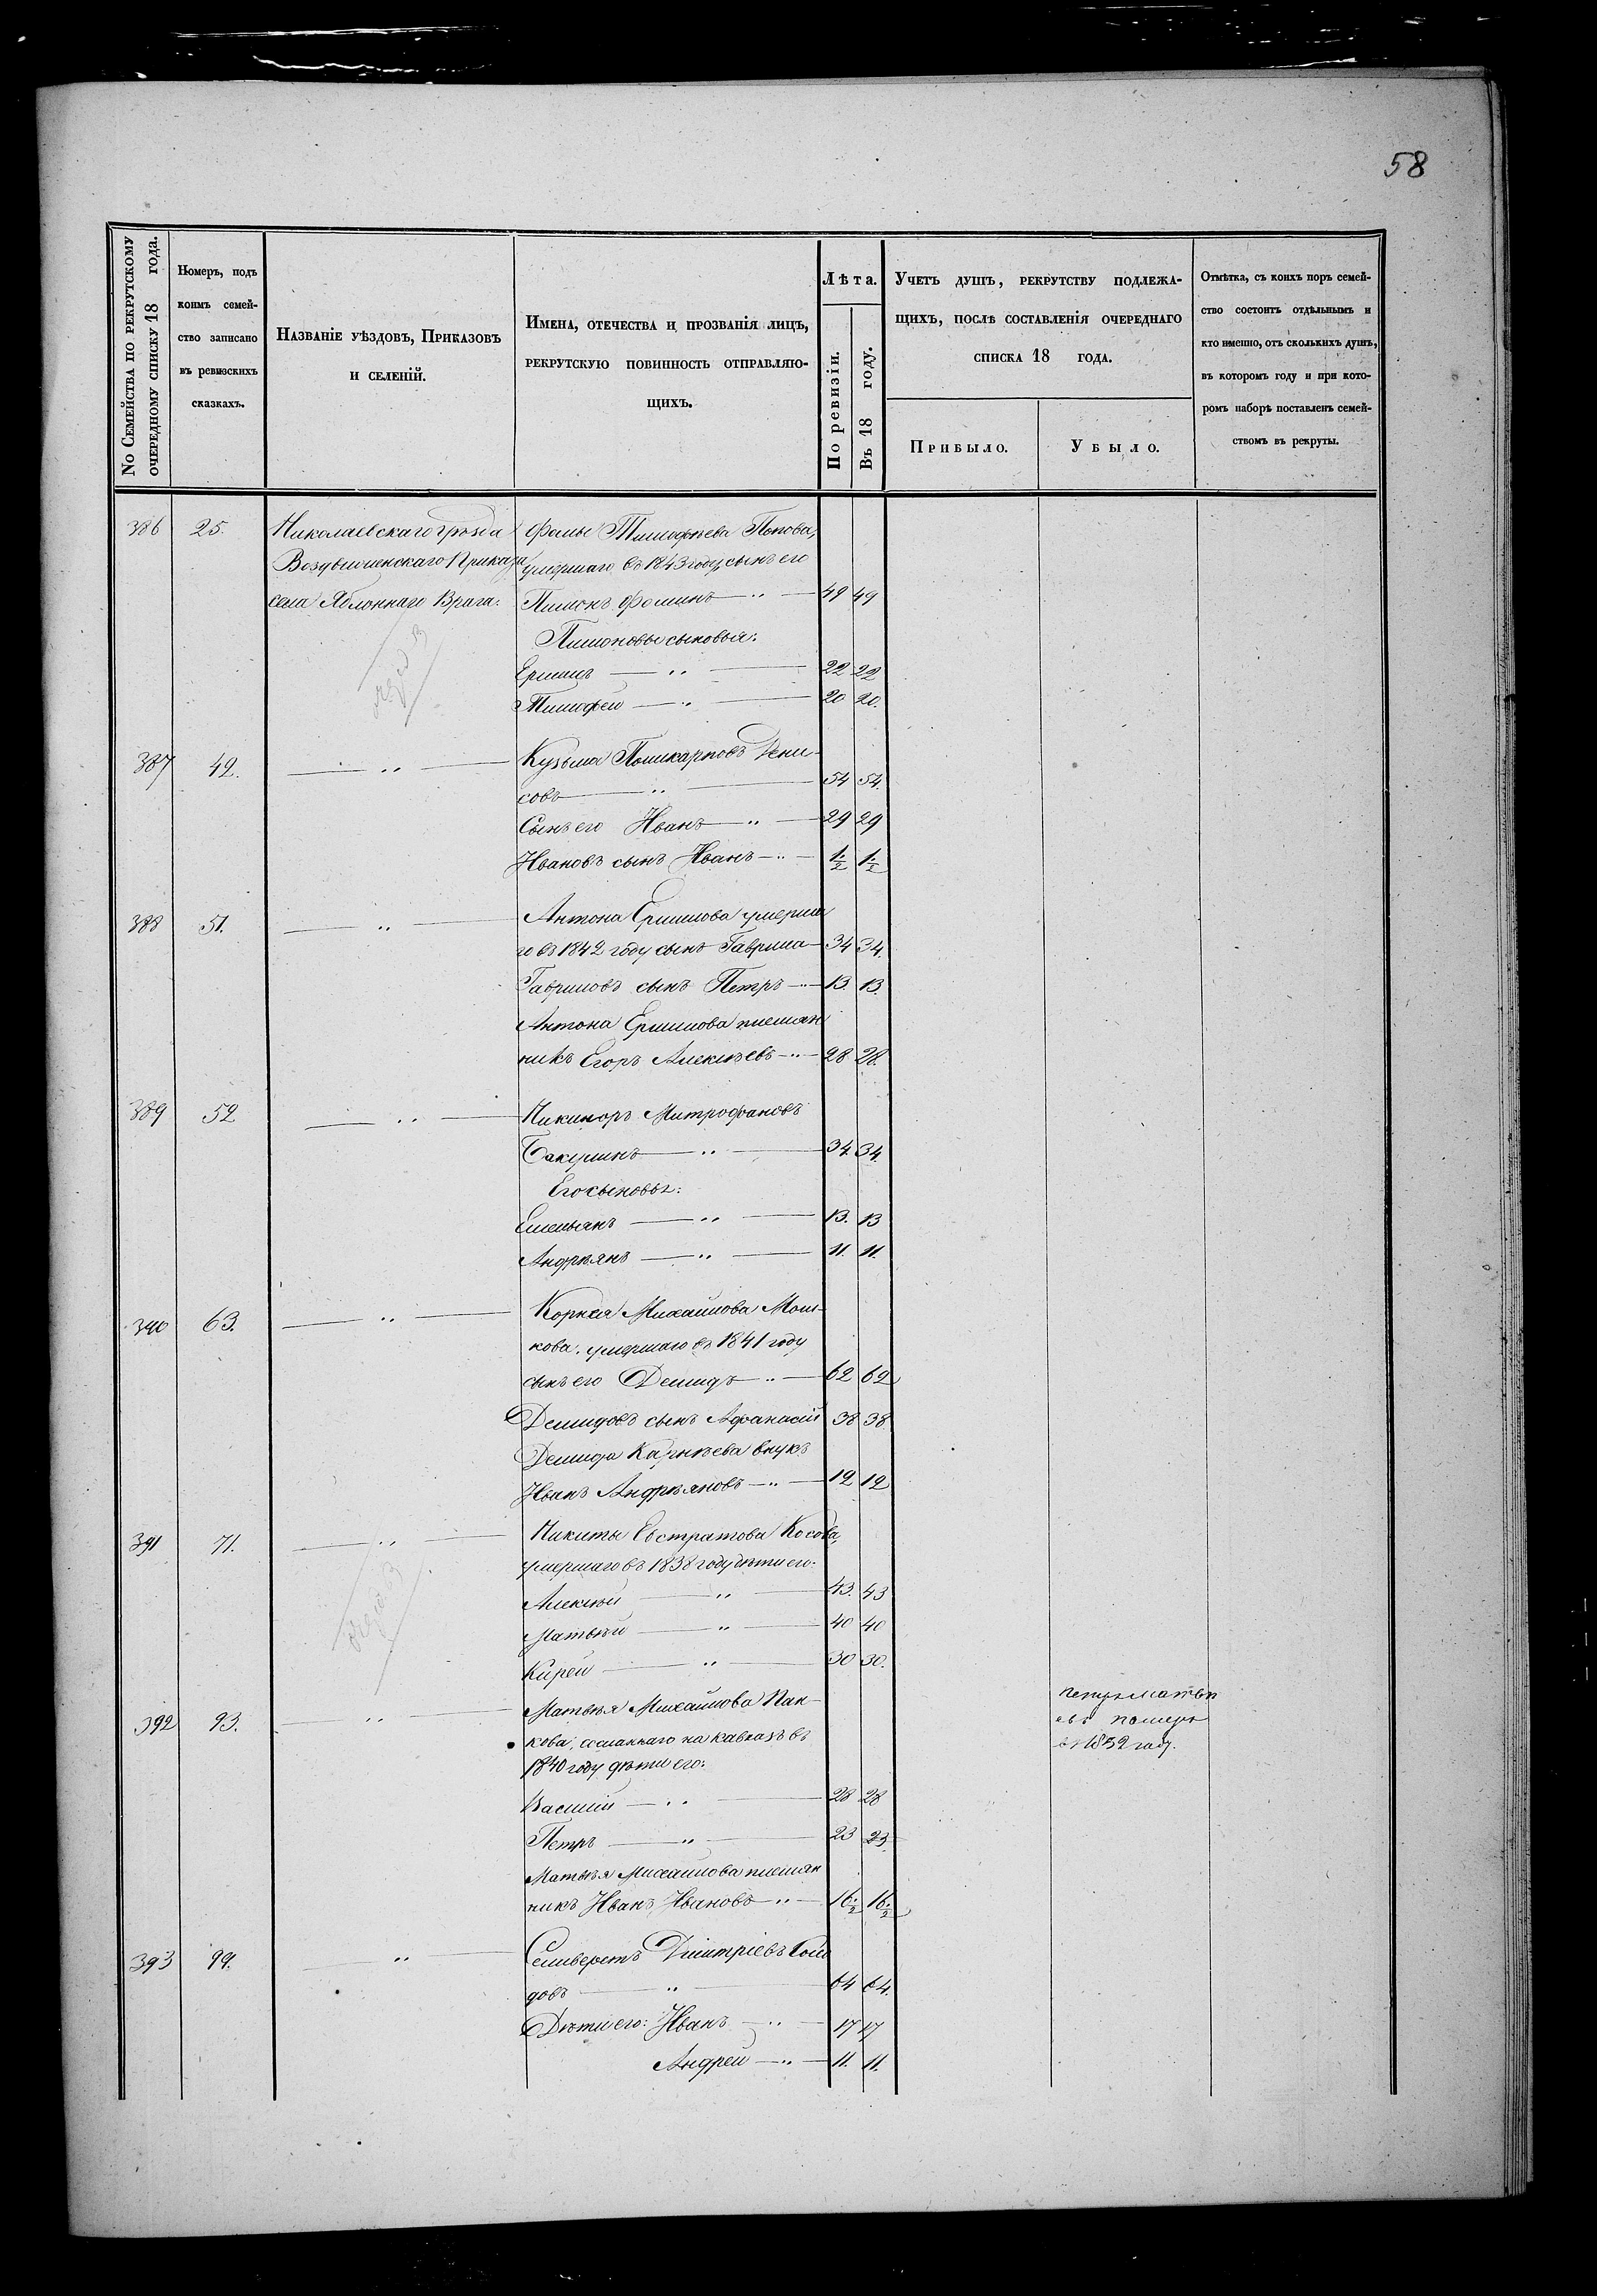 58
No Семейства по рекрутскому
очередному списку 18 года.
Номеръ, подъ
коимъ семей-
ство записано
въ ревизскихъ
сказкахъ.
Названіе уѣздовъ, Приказовъ
и селеній.
Имена, отечества и прозванія лицъ,
рекрутскую повинность отправляю-
щихъ.
Лѣта.
По ревизіи.
Въ 18 году.
Учетъ душъ, рекрутству подлежа-
щихъ, послѣ составленія очереднаго
списка 18 года.
Прибыло.
Убыло.
Отмѣтка, съ коихъ поръ семей-
ство состоитъ отдѣльнымъ и
кто именно, отъ сколькихъ душъ,
въ которомъ году и при кото-
ромъ наборѣ поставленъ семей-
ствомъ въ рекруты.
386 25. Николаевскаго уѣзда Фомы Тимофѣева Попова,
Воздвиженскаго Приказа умершаго въ 1843 году, сынъ его
села Яблоннаго Врага. Пимонъ Фоминъ — " — 49 49
Пимоновы сыновья:
Ермилъ — " — 22 22
Тимофей — " — 20 20.
387 42. — " — Кузьма Поликарповъ Дени-
совъ — " — 54 54.
Сынъ его Иванъ — " — 29 29
Ивановъ сынъ Иванъ — " — 1 1/2 1 1/2
388 51. — " — Антона Ермилова умерша
го въ 1842 году сынъ Гаврила — 34 34.
Гавриловъ сынъ Петръ — " — 13. 13.
Антона Ермилова племян
никъ Егоръ Алексѣевъ — " — 28 28.
389 52 — " — Никиноръ Митрофановъ
Бакулинъ — " — 34. 34.
Его сыновья:
Емельянъ — " — 13. 13
Андрѣянъ — " — 11. 11.
390 63. — " — Корнея Михайлова
кова. умершаго въ 1841 году
сынъ его Демидъ — " — 62 62
Демидовъ сынъ Афанасій 38 38.
Демида Карнѣева внукъ
Иванъ Андрѣяновъ — " — 12 12
391 71. — " — Никиты Евстратова Косова,
умершаго въ 1838 году дѣти его:
Алексѣй — " — 43. 43
Матвѣй — " — 40 40
Кирей — " — 30 30.
392 93. — " — Матвѣя Михайлова Пан-
кова, сосланнаго на кавказъ въ
1840 году дѣти его:
Василій — " — 28 28
Петръ — " — 23 23.
Матвѣя Михайлова племян
никъ Иванъ Ивановъ — " — 16 1/2 16 1/2
Петръ Матвѣ
евъ померъ
въ 1852 году.
393 99. — " — Селиверстъ Дмитріевъ
довъ — " — 64 64.
Дѣти его: Иванъ — " — 17 17
Андрей — " — 11. 11.